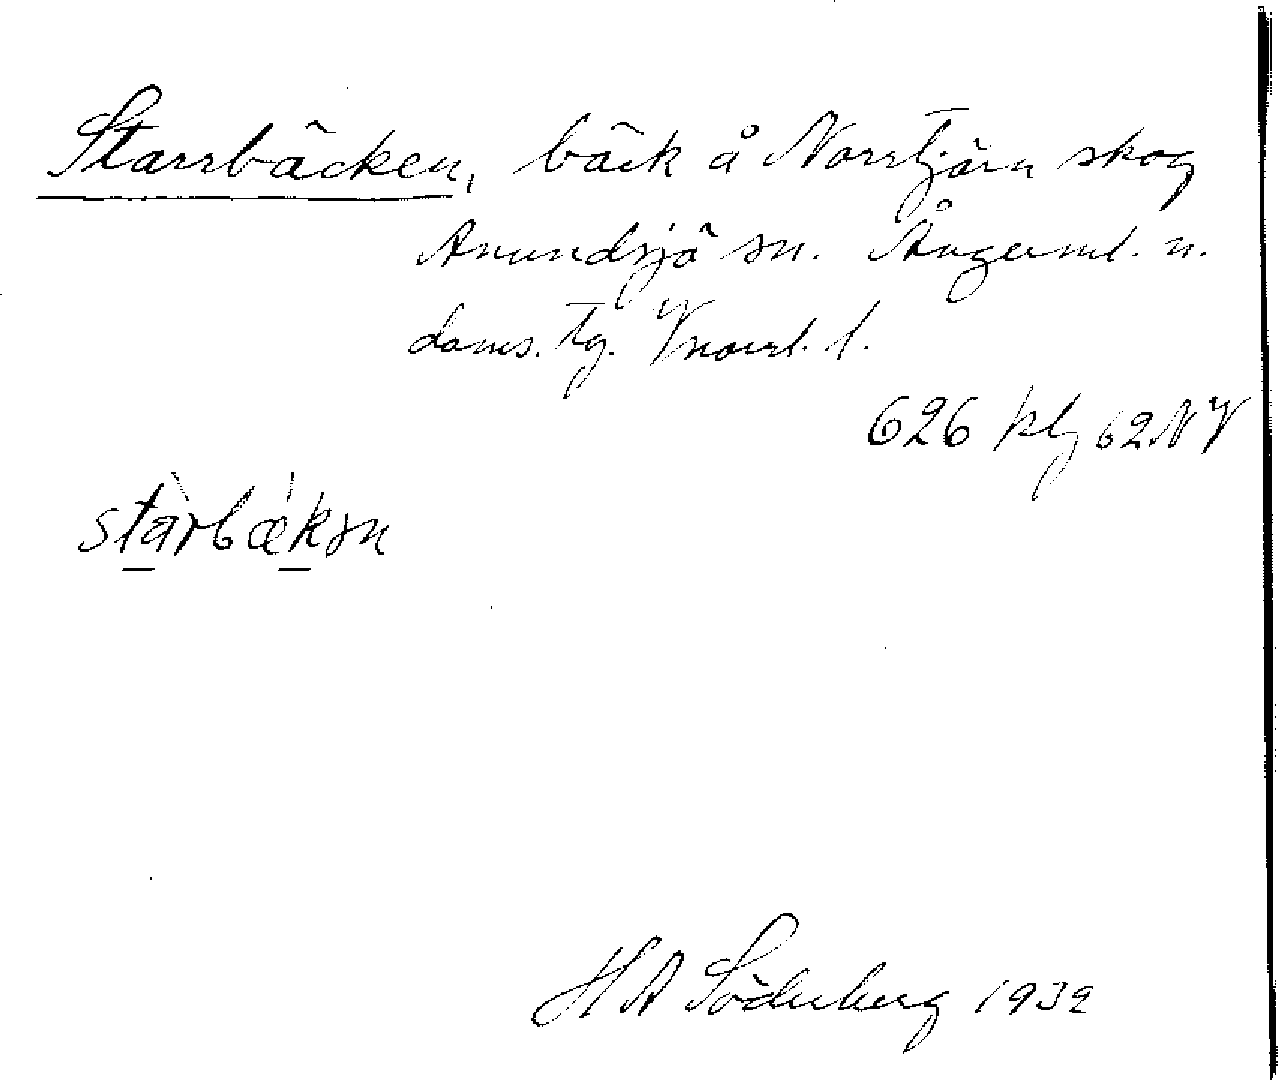 Starrbäcken, bäck å Norrtjärn skog
Anundsjö sn. Ångerml. n.
doms. tg. Vnorrl. l.
626 klg 62NV
stàrbǽkən
H A Söderberg 1932